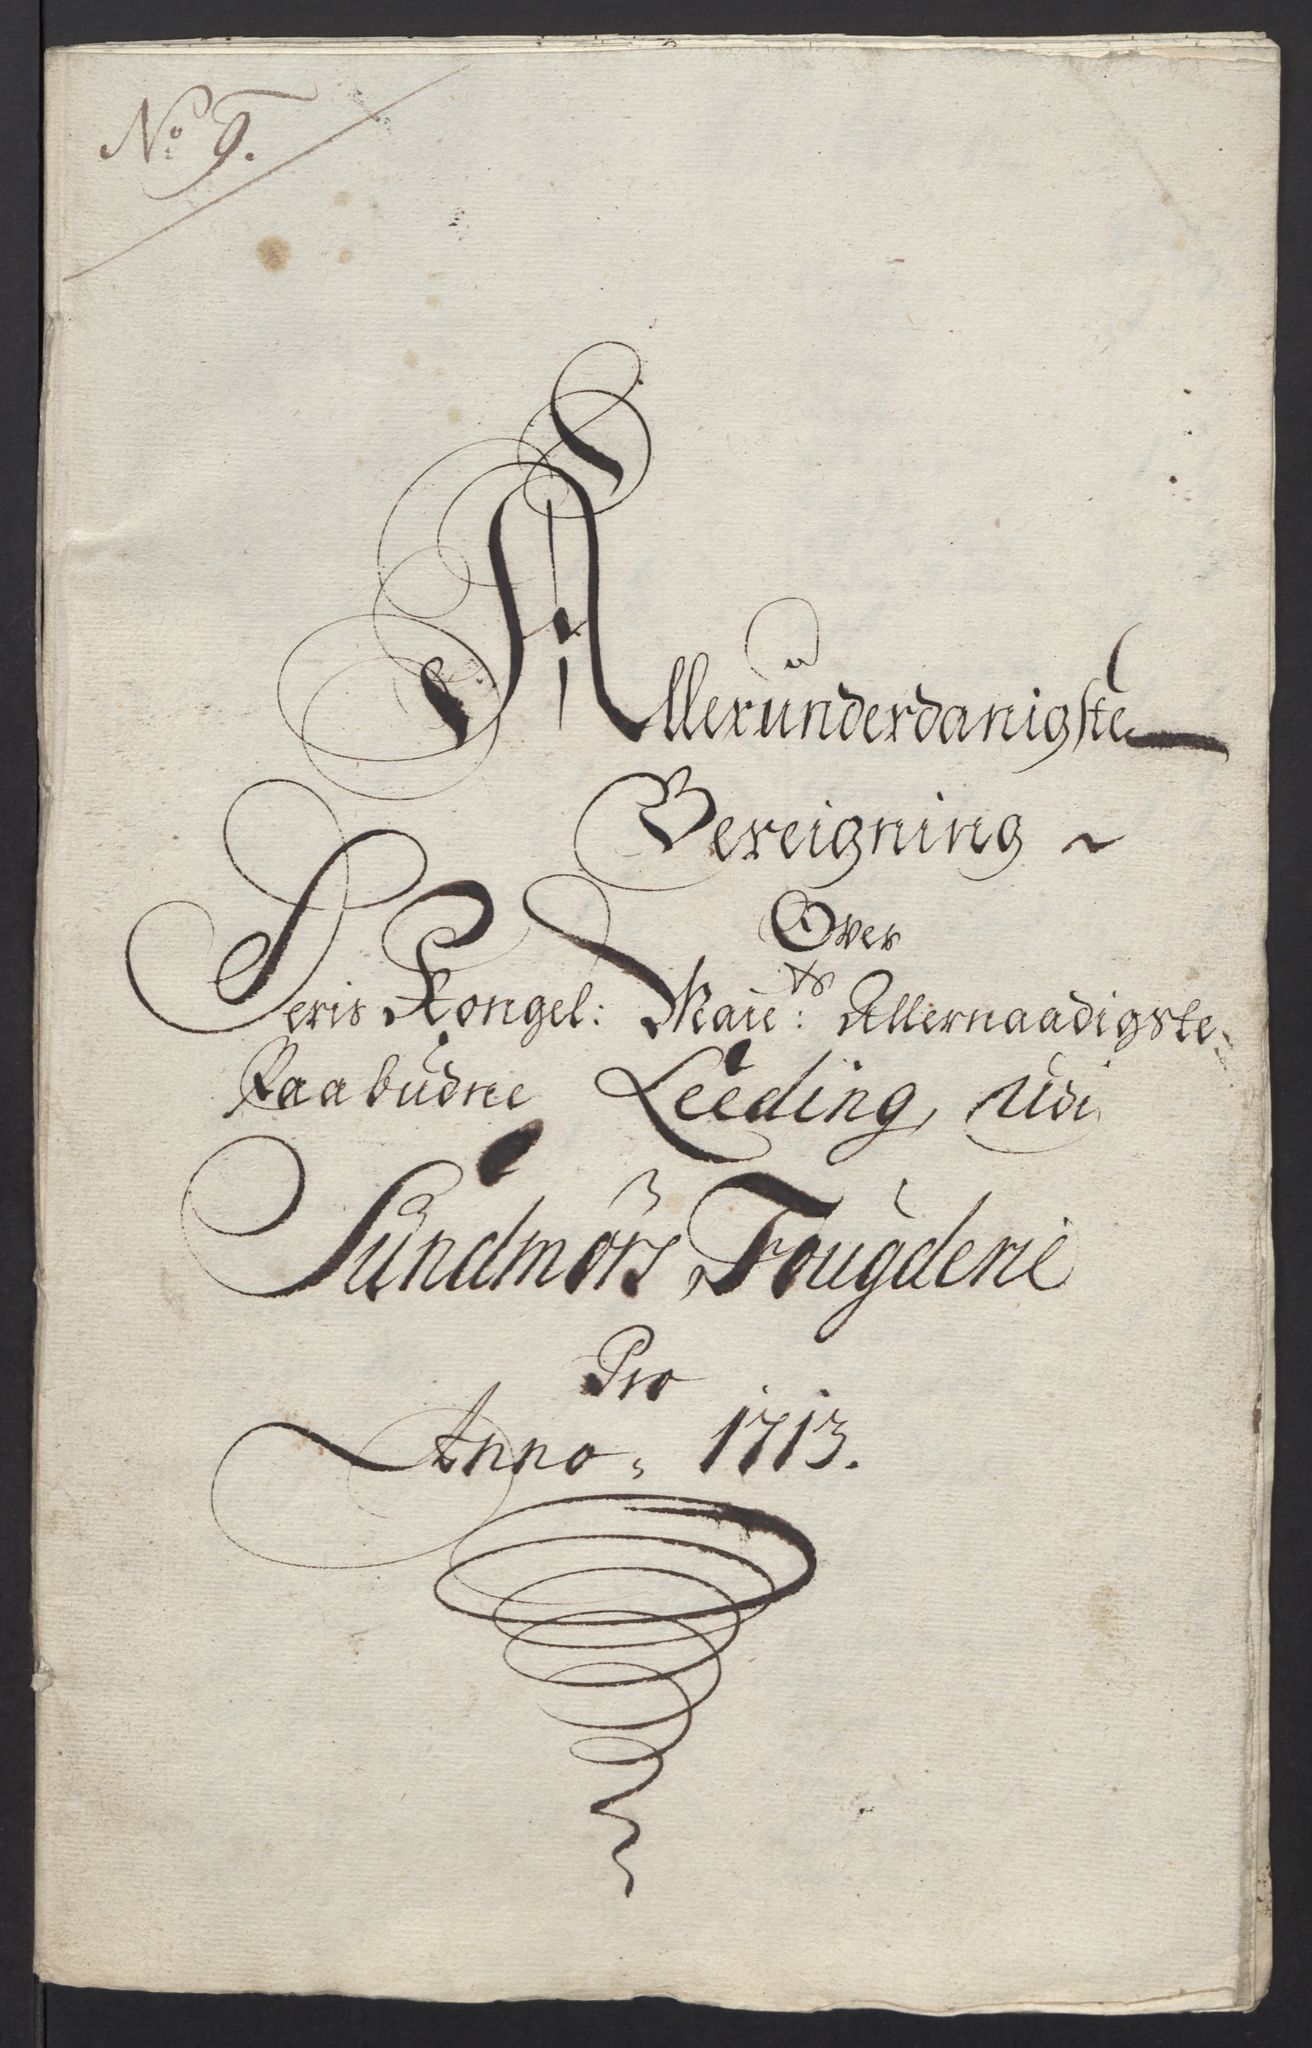 No 9.
Alleründerdanigste
Bereigning ~
Over
Deris Kongel: Maiets: Allernaadigste
Paabudne Leeding, udi
Sundmörs Fougderie
Pro
Anno, 1713.